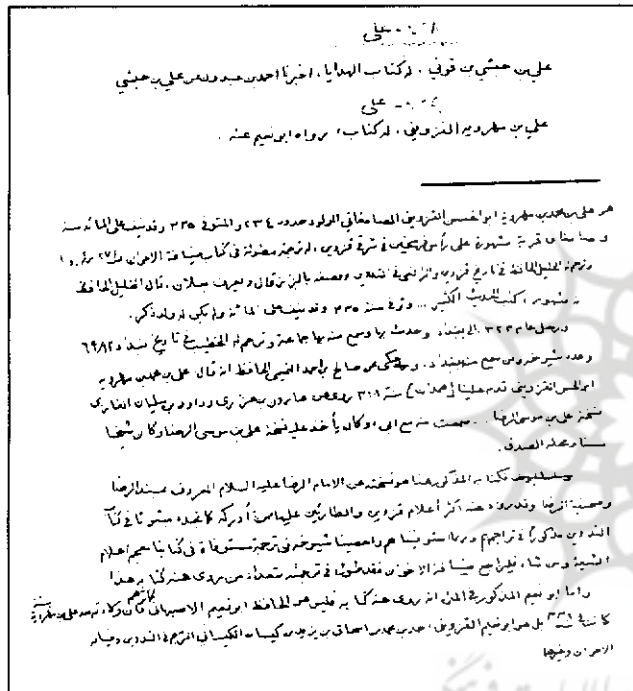 على
علي بن حبشي بن قوني ، له كتاب الهدايا ، اخبرنا احمد بن عبدون عن علي بن حبشي
على
علي بن مهرويه القزويني ، له كتاب ، رواه ابو نعيم عنه .
هو علي بن محمد بن مهرويه ابو الحسن القزويني الصامغاني المولود حدود ٢٣٤ والمتوفى ٣٣٥ وقد نيف على المائه سنة
وصامغان قرية مشهورة على رأس فرسخين في شرقي قزوين ، له ترجمة مطولة في كتاب ضيافة الاخوان
وترجمه الخليل الحافظ في تاريخ قزوين والرافعي في التدوين ووصفه بالبزاز قال ويعرف بعلان ، قال الخليل الحافظ
مشهور ، كتب الحديث الكثير ... وتوفى سنة ٣٣٥ وقد نيف على المائة ولم يكن له ولد ذكر .
ورحل عام ٣٢٣ الى بغداد وحدث بها وسمع منه بها جماعة وترجم له الخطيب في تاريخ بغداد
وعدد شيوخه ومن سمع منه ببغداد ، وحكى عن صالح بن احمد الحافظ انه قال علي بن محمد بن مهرويه
ابو الحسن القزويني قدم علينا سنة ٣١٨ روى عن هارون بن هزاري وداود بن سليمان الغازي
نسخة علي بن موسى الرضا ... سمعت منه مع ابي ، وكان يأخذ على نسخة علي بن موسى الرضا وكان شيخا
مسنا ومحله الصدق .
فكتابه المذكور هنا هو نسخته عن الامام الرضا عليه السلام المعروف بمسند الرضا
وصحيفة الرضا وقد رواه عنه اكثر أعلام قزوين والطارئين عليها ممن أدركه كما تجده مبثوثا في كتاب
التدوين مذكورا في تراجمهم وربما استوفيناهم واحصينا شيوخه في ترجمة مستوفاة في كتابنا معجم أعلام
الشيعة ومن شاء فليراجع ضيافة الاخوان فقد في ترجمته بتعداد من يروي عنه كتابه هذا
واما ابو نعيم المذكور في المتن انه روى عنه كتابه فليس هو الحافظ ابو نعيم الاصبهاني فان ولادته بعد علي بن مهرويه
كانت في بل هو ابو نعيم القزويني احمد بن محمد بن اسحاق بن يزيد بن كيسان الكيساني المترجم في التدوين وضيافة
الاخوان وغيرها